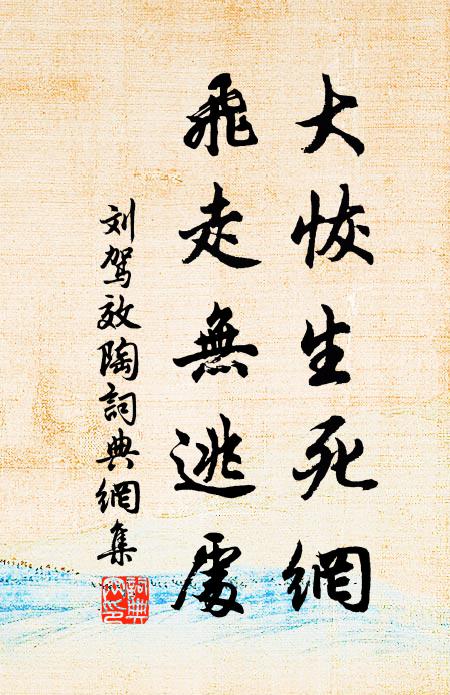 大恢生死網
飛走無逃處
刘駕效陶詞典網集